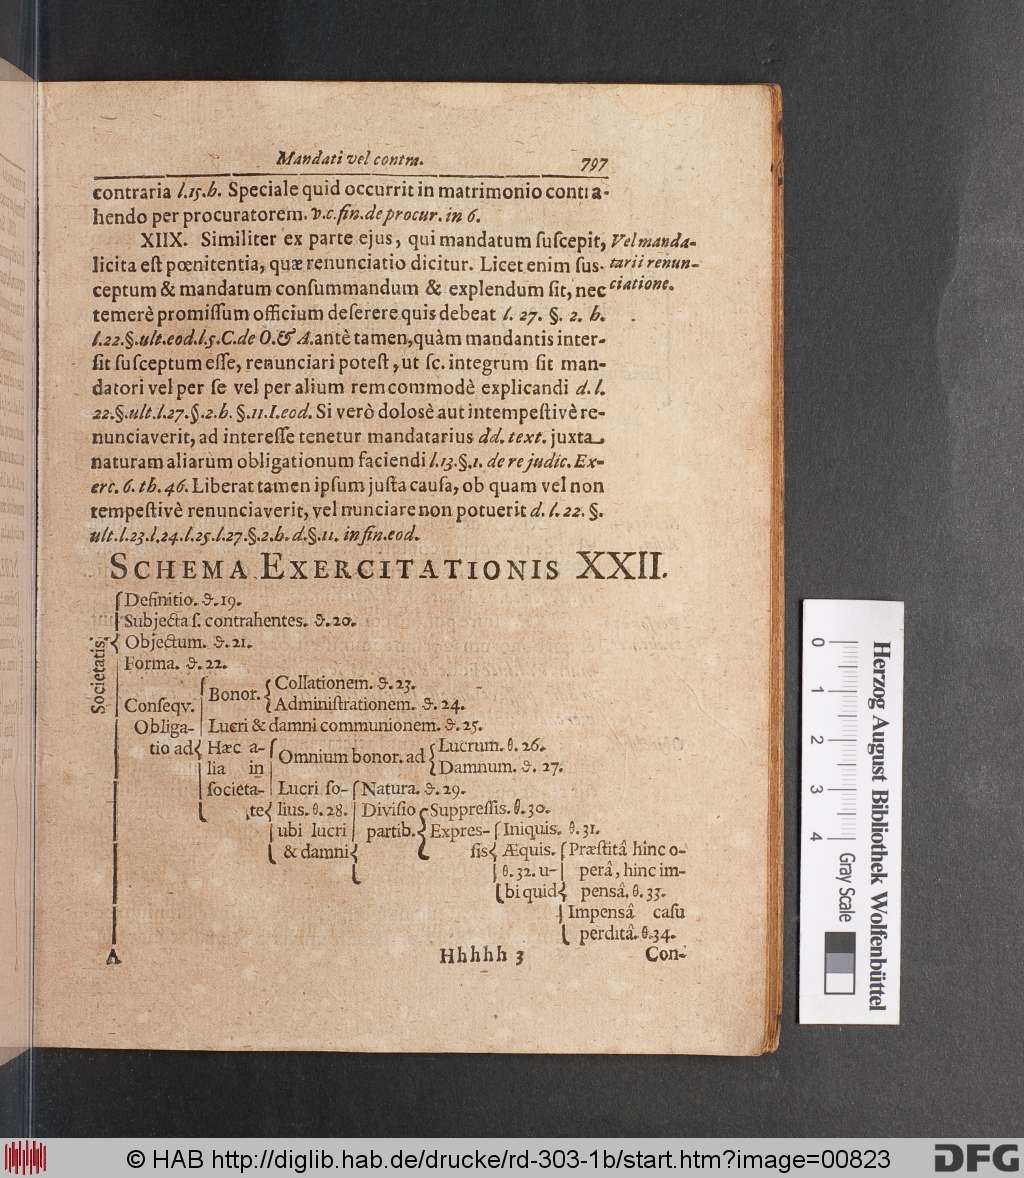 Mandati vel contra. 797
contraria l.15.h. Speciale quid occurrit in matrimonio contra-
hendo per procuratorem. v.c.fin.de procur. in 6.
XIIX. Similiter ex parte ejus, qui mandatum ſuſcepit,
licita eſt pœnitentia, quæ renunciatio dicitur. Licet enim ſus-
ceptum & mandatum conſummandum & explendum ſit, nec
temerè promiſſum officium deſerere quis debeat l. 27. §. 2. h.
l.22.§.ult.eod.l.5.C.de O.& A. antè tamen, quàm mandantis inter-
ſit ſuſceptum eſſe, renunciari poteſt, ut ſc. integrum ſit man-
datori vel per ſe vel per alium rem commodè explicandi d. l.
22.§.ult.l.27.§.2.h. §.11.I.eod. Si verò dolosè aut intempeſtivè re-
nunciaverit, ad intereſſe tenetur mandatarius dd. text. juxta
naturam aliarum obligationum faciendi l.13.§.1. de re judic. Ex-
erc. 6. th. 46. Liberat tamen ipſum juſta cauſa, ob quam vel non
tempeſtivè renunciaverit, vel nunciare non potuerit d. l. 22. §.
ult.l.23.l.24.l.25.l.27.§.2.h. d.§.11. in fin. eod.
Vel manda-
tarii renun-
ciatione.
SCHEMA EXERCITATIONIS XXII.
Societatis.
Definitio. ϑ.19.
Subjecta ſ. contrahentes. ϑ.20.
Objectum. ϑ.21.
Forma. ϑ.22.
Conſeqv.
Obliga-
tio ad
Bonor.
Collationem. ϑ.23.
Adminiſtrationem. ϑ.24.
Lucri & damni communionem. ϑ.25.
Hæc a-
lia in
ſocieta-
te
Omnium bonor. ad
Lucrum. θ.26.
Damnum. ϑ. 27.
Lucri ſo-
lius. θ.28.
ubi lucri
& damni
Natura. ϑ.29.
Diviſio
partib.
Suppreſſis. θ.30.
Expreſ-
ſis
Iniquis. θ.31.
Æquis.
θ.32. u-
bi quid
Præſtitâ hinc o-
perâ, hinc im-
pensâ. θ.33.
Impensâ caſu
perditâ. θ.34.
A Hhhhh 3 Con-
0 1 2 3 4
Gray Scale
Herzog August Bibliothek Wolfenbüttel
© HAB http://diglib.hab.de/drucke/rd-303-1b/start.htm?image=00823
DFG